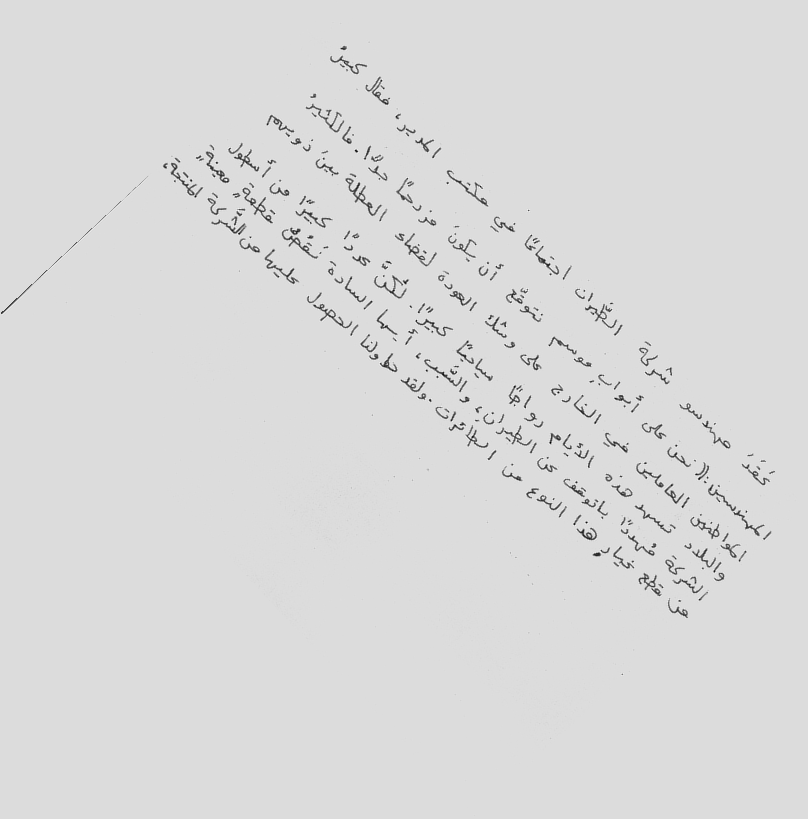 عَقَدَ مهندسو شركة الطَّيران اجتماعًا في مكتب المدير، فقال كبيرُ
المهندسين:((نحن على أبوابِ موسم نتوقّع أن يكونَ مزدحمًا جدًّا. فالكثيرُ
المواطنين العاملين في الخارج على وشك العودة لقضاء العطلة بينَ ذويهم
والبلاد تسهد هذه الأيام رواجًا سياحيًّا كبيرًا. لكنَّ عددًا كبيرًا من أسطول
الشركة مُهددًا باتوقف عن الطيرانِ، والسَّبب، أيها السادة نَقْصُ قطعةٍ معينةٍ
من قطع غيارِ هذا النوع من الطائرات. ولقد حاولنا الحصول عليها من الشَّركة المنتجة،